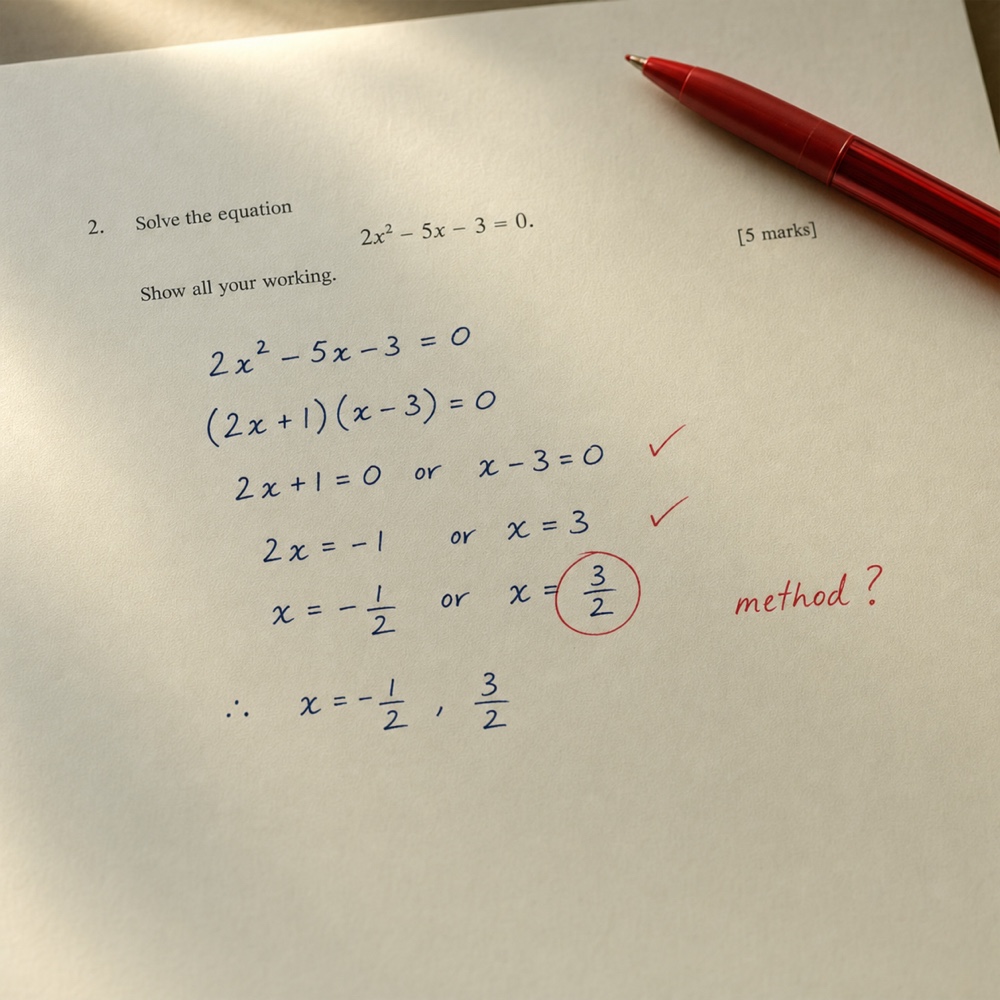 2. Solve the equation
2x² − 5x − 3 = 0.
[5 marks]
Show all your working.
2x² − 5x − 3 = 0
(2x + 1)(x − 3) = 0
2x + 1 = 0 or x − 3 = 0 ✓
2x = −1 or x = 3 ✓
x = −1/2 or x = 3/2 method ?
∴ x = −1/2 , 3/2